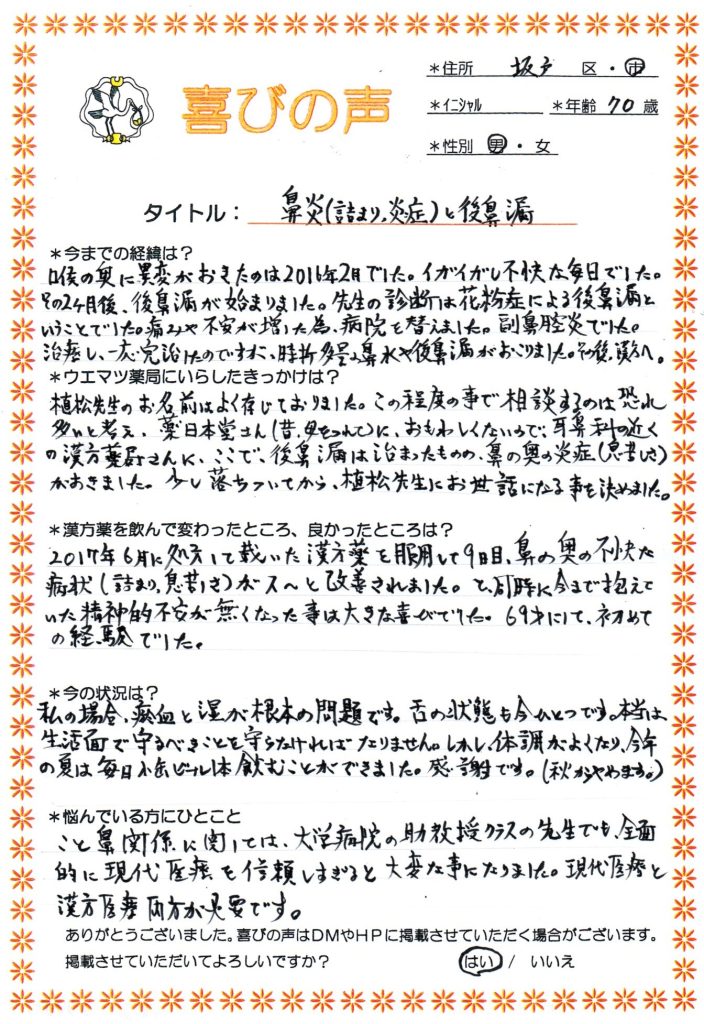 喜びの声
*住所 坂戸 区・市
*イニシャル *年齢 70 歳
*性別 男・女
タイトル: 鼻炎(詰まり,炎症)と後鼻漏
*今までの経緯は?
口侯の奥に異変がおきたのは2016年2月でした。イガイガし不快な毎日でした。
その2ヶ月後、後鼻漏が始まりました。先生の診断は花粉症による後鼻漏と
いうことでした。痛みや不安が増した為、病院を替えました。副鼻腔炎でした。
治療し、一応完治したのですが、時折多量の鼻水や後鼻漏がおこりました。その後、漢方へ。
*ウエマツ薬局にいらしたきっかけは?
植松先生のお名前はよく存じておりました。この程度の事で相談するのは恐れ
多いと考え、薬日本堂さん(昔、男をつれて)に、おもわしくないので、耳鼻科の近く
の漢方薬局さんに、ここで、後鼻漏は治まったものの、鼻の奥の炎症(息苦しさ)
がおきました。少し落ちついてから、植松先生にお世話になる事を決めました。
*漢方薬を飲んで変わったところ、良かったところは?
2017年6月に処方して戴いた漢方薬を服用して9日目、鼻の奥の不快な
病状(詰まり,息苦しさ)がスーと改善されました。と、同時に今まで抱えて
いた精神的不安が無くなった事は大きな喜びでした。69才にして、初めて
の経験でした。
*今の状況は?
私の場合、瘀血と湿が根本の問題です。舌の状態も今ひとつです。本当は、
生活面で守るべきことを守らなければなりません。しかし、体調がよくなり、今年
の夏は毎日小缶ビール1本飲むことができました。感謝です。(秋からやめます。)
*悩んでいる方にひとこと
こと鼻関係に関しては、大学病院の助教授クラスの先生でも、全面
的に現代医療を信頼しすぎると大変な事になりました。現代医療と
漢方医療両方が必要です。
ありがとうございました。喜びの声はDMやHPに掲載させていただく場合がございます。
掲載させていただいてよろしいですか? はい / いいえ